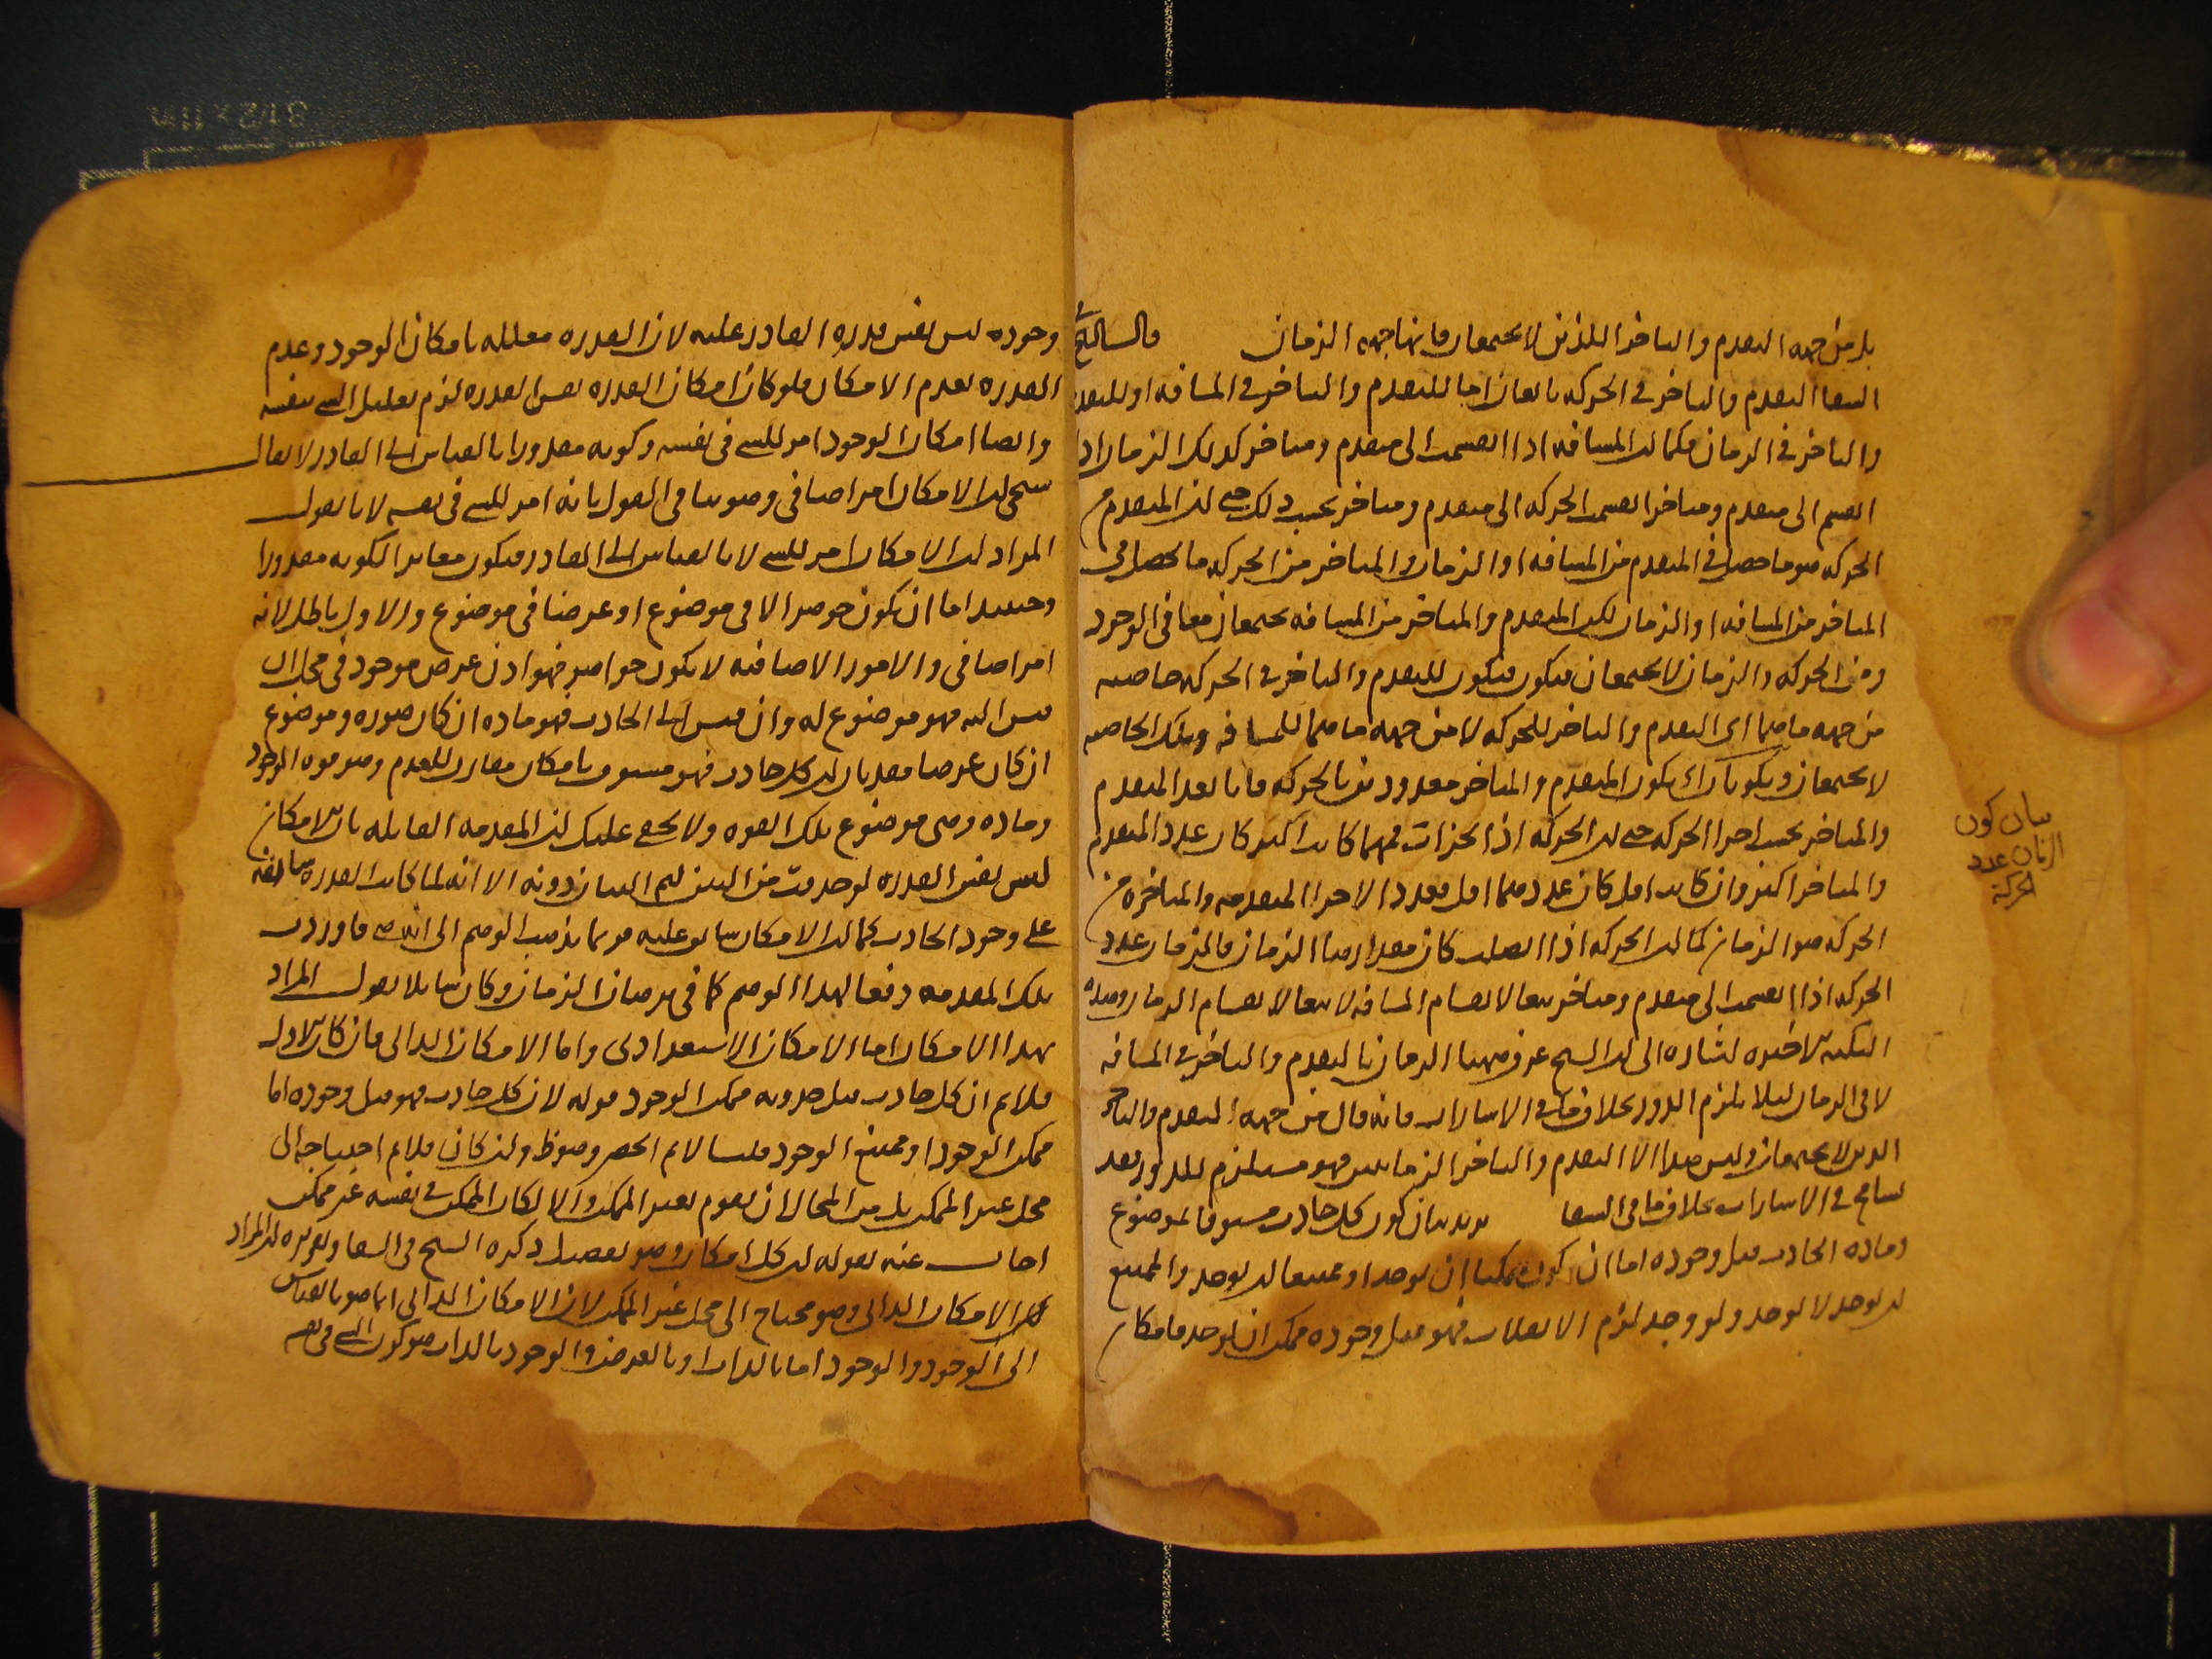 بل من جهه التقدم والتاخر اللذين لا يجتمعان فانها جهه الزمان قال الشيخ في
الشفا التقدم والتاخر في الحركه تابعان اما للتقدم والتاخر في المسافه او للتقدم
والتاخر في الزمان فكما ان المسافه اذا انقسمت الى متقدم ومتاخر كذلك الزمان اذا
انقسم الى متقدم ومتاخر انقسمت الحركه الى متقدم ومتاخر بحسب ذلك حتى ان المتقدم من
الحركه هو ما حصل في المتقدم من المسافه او الزمان والمتاخر من الحركه ما يحصل في
المتاخر من المسافه او الزمان لكن المتقدم والمتاخر من المسافه يجتمعان معا في الوجود
ومن الحركه والزمان لا يجتمعان فيكون فيكون للتقدم والتاخر في الحركه خاصيه
من جهه ما هما اى التقدم والتاخر للحركه لا من جهه ما هما للمسافه وتلك الخاصيه
لا يجتمعان ويكونان اى يكون المتقدم والمتاخر معدودين بالحركه فانا نعد المتقدم
والمتاخر بحسب اجزا الحركه حتى ان الحركه اذا تجزات فمهما كانت اكثر كان عدد المتقدم
والمتاخر اكثر وان كانت اقل كان عددهما اقل فعدد الاجزا المتقدمه والمتاخره من
الحركه هو الزمان كما ان الحركه اذا اتصلت كان مقدارها الزمان فالزمان عدد
الحركه اذا انقسمت الى متقدم ومتاخر تبعا لانقسام المسافه لا تبعا لانقسام الزمان وهذه
النكته الاخيره اشاره الى ان الشيخ عرف ههنا الزمان بالتقدم والتاخر في المسافه
لا في الزمان ليلا يلزم الدور بخلاف ما في الاشارات فانه قال من جهه التقدم والتاخر
الذين لا يجتمعان وليس هذا الا التقدم والتاخر الزمانيين فهو مستلزم للدور فقد
تسامح في الاشارات بخلاف ما في الشفا يريد بيان كون كل حادث مسبوقا لموضوع
وماده الحادث قبل وجوده اما ان يكون ممكنا ان يوجد او ممتنعا ان يوجد والممتنع
ان يوجد لا يوجد ولو وجد لزم الانقلاب فهو قبل وجوده ممكن ان يوجد فامكان
بيان كون
الزمان عدد
الحركة
وجوده ليس نفس قدره القادر عليه لان القدره معلله بامكان الوجود وعدم
القدره بعدم الامكان فلو كان امكان القدره نفس القدره لزم تعليل الشى بنفسه
وايضا امكان الوجود امر للشى في نفسه وكونه مقدورا بالقياس الى القادر لا يقال
سيجى ان الامكان امر اضافي وهو ينافي القول بانه امر للشى في نفسه لانا نقول
المراد ان الامكان امر للشى لا بالقياس الى القادر فيكون مغايرا لكونه مقدورا
وحينئذ اما ان يكون جوهرا لا في موضوع او عرضا في موضوع والاول باطل لانه
امر اضافي والامور الاضافيه لا يكون جواهر فهو اذن عرض موجود في محل ان
قيس اليه فهو موضوع له وان قيس الى الحادث فهو ماده ان كان صوره وموضوع
ان كان عرضا فقد بان ان كل حادث فهو مسبوق بامكان مقارن للعدم وهو قوه الوجود
وماده وهى موضوع تلك القوه ولا يخفى عليك ان المقدمه القايله بان الامكان
ليس نفس القدره لو حذفت من البين ليم البيان دونه الا انه لما كانت القدره سابقه
على وجود الحادث كما ان الامكان سابق عليه فربما يذهب الوهم الى انه هى فاوردت
تلك المقدمه دفعا لهذا الوهم كما في برهان الزمان وكان قايلا يقول المراد
بهذا الامكان اما الامكان الاستعدادى واما الامكان الذاتى فان كان الاول
فلا نم ان كل حادث قبل حدوثه ممكن الوجود قوله لان كل حادث فهو قبل وجوده اما
ممكن الوجود او ممتنع الوجود قلنا لا نم الحصر وهو ظ وان كان فلا نم احتياجه الى
محل غير الممكن بل من المحال ان يقوم بغير الممكن والا لكان الممكن في نفسه غير ممكن
اجاب عنه بقوله ان كل امكان وهو تفصيل ذكره الشيخ في الشفا وتقريره ان المراد
الامكان الذاتى وهو محتاج الى محل غير الممكن لان الامكان الذاتى انما هو بالقياس
الى الوجود والوجود اما بالذات او بالعرض والوجود بالذات هو كون الشى في نفسه